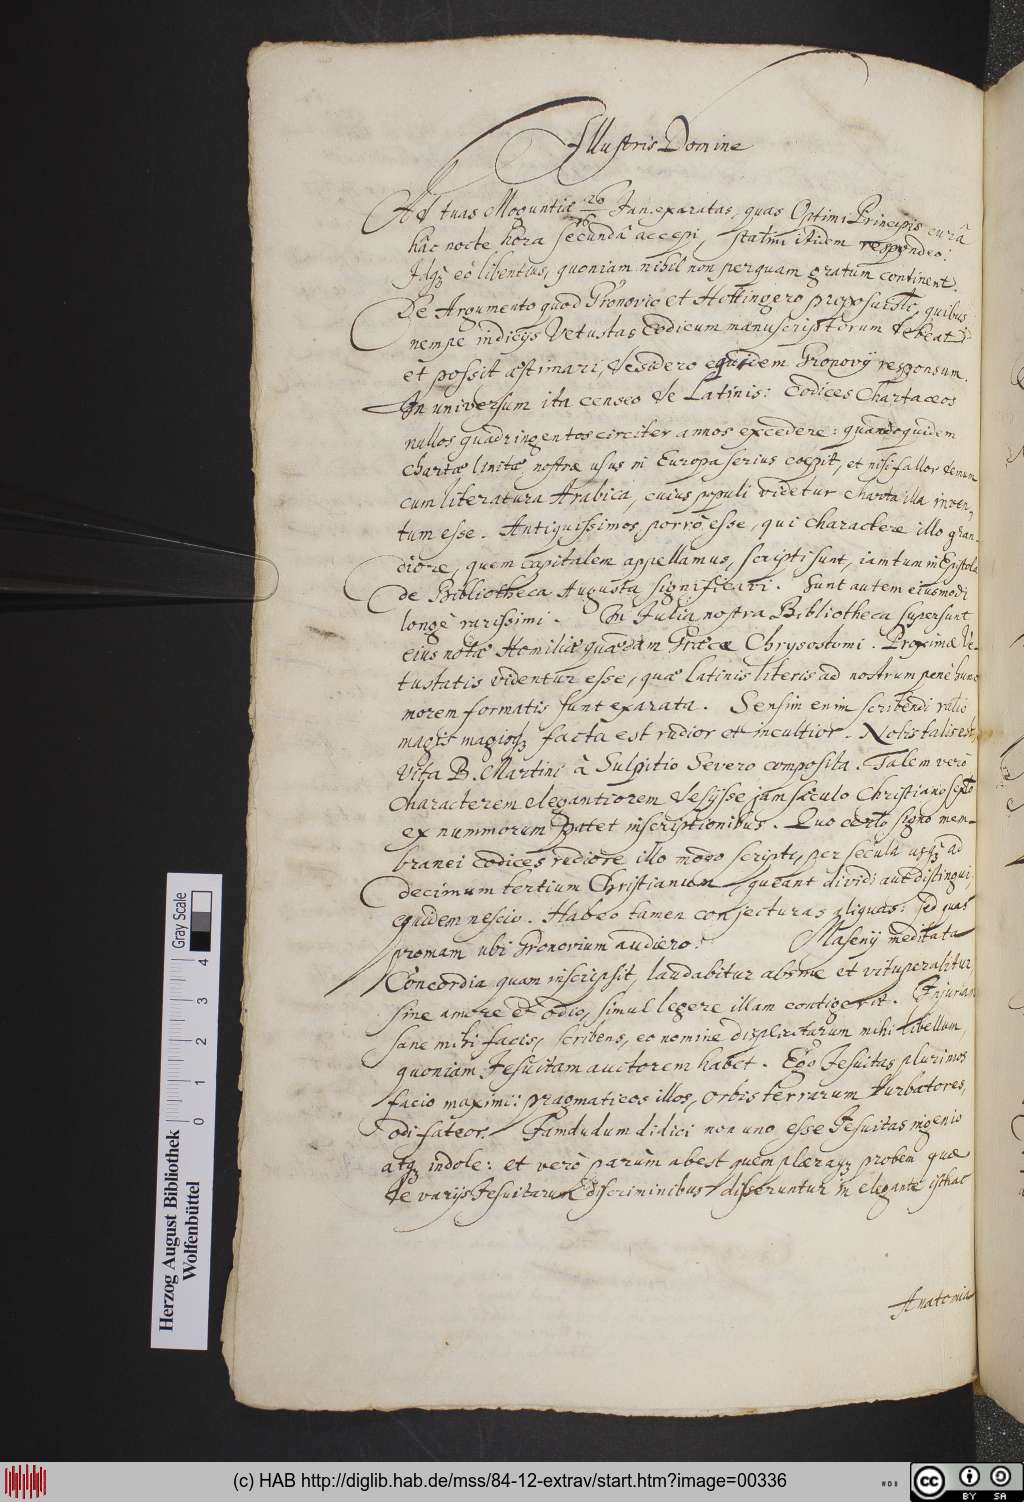 Illustris Domine
Ad tuas Moguntiæ 26/16 Jan. exaratas, quas Optimi Principis curâ
hâc nocte hôra secundâ accepi, statim itidem respondeo:
Idq; eò libentius, quoniam nihil non perquam gratum continent.
De Argumento quod Gronovio et Hottingero proposuisti, quibus
nempe indicijs Vetustas Codicum manuscriptorum debeat
et possit æstimari, desidero equidem Gronovij responsum.
In universum ita censeo de Latinis: Codices Chartaceos
nullos quadringentos circiter annos excedere: quandoquidem
chartæ linteæ nostræ usus in Europa serius coepit, et nisi fallor demum
cum literatura Arabica, cuius populi videtur charta illa inven-
tum esse. Antiquissimos porrò esse, qui charactere illo gran-
diore, quem capitalem appellamus, scripti sunt, iam tum in Epistola
de Bibliotheca Augusta significavi. Sunt autem eiusmodi
longè rarissimi. In Julia nostra Bibliotheca supersunt
eius notæ Homiliæ quædam Græcæ Chrysostomi. Proximæ Ve-
tustatis videntur esse, quæ latinis literis ad nostrum penè hunc
morem formatis sunt exarata. Sensim enim scribendi ratio
magis magisq; facta est rudior et incultior. Nobis talis est
Vita B. Martini à Sulpitio Severo composita. Talem verò
characterem elegantiorem desijsse jam sæculo Christiano sexto
ex nummorum patet inscriptionibus. Quo certo signo mem-
branei codices rudiore illo modo scripti, per secula usq; ad
decimum tertium Christianum queant dividi aut distingui,
equidem nescio. Habeo tamen conjecturas aliquas: sed quas
promam ubi Gronovium audiero. Masenij meditata
Concordia quam inscripsit, laudabitur abs me et vituperabitur
sine amore et odio, simul legere illam contigerit. Injuriam
sane mihi facis, scribens, eo nomine displicturum mihi libellum,
quoniam Jesuitam auctorem habet. Ego Jesuitas plurimos
facio maximi: pragmaticos illos, orbis terrarum turbatores,
odi fateor. Jamdudum didici non uno esse Jesuitas ingenio
atq; indole: et verò parùm abest quem pleraq; probem quæ
de varijs Jesuitarum discriminibus disseruntur in elegante isthac
Anatomia
Herzog August Bibliothek
Wolfenbüttel
0 1 2 3 4
Gray Scale
(c) HAB http://diglib.hab.de/mss/84-12-extrav/start.htm?image=00336
cc BY SA